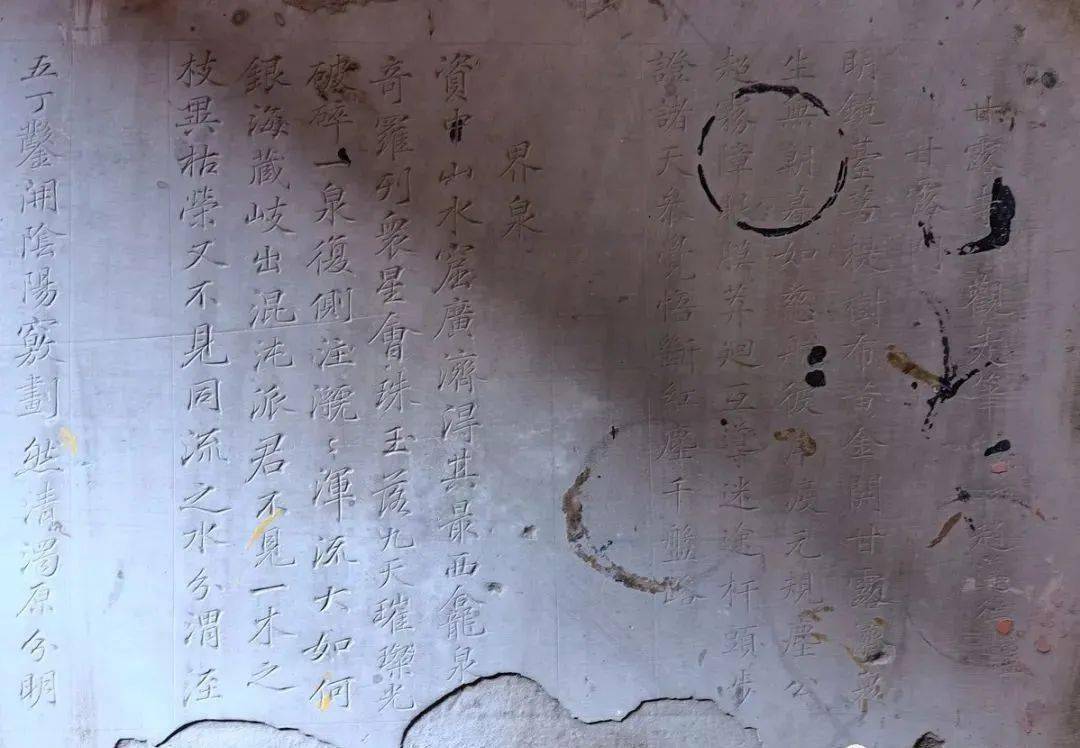 甘露 觀
甘露門
明鏡臺菩提樹布黃金開甘露
生無 嘉如慈航彼岸渡元規塵公
超霧障 莽迴互 迷途杆頭步
證諸天參覺悟斷紅塵千盤路
界泉
資中山水窟廣濟得其最西龕泉
奇羅列衆星會珠玉落九天璀璨光
破碎一泉復側注濺〻渾流大如何
銀海藏岐出混沌派君不見一木之
枝異枯榮又不見同流之水分渭涇
五丁鑿開陰陽竅劃然清濁原分明